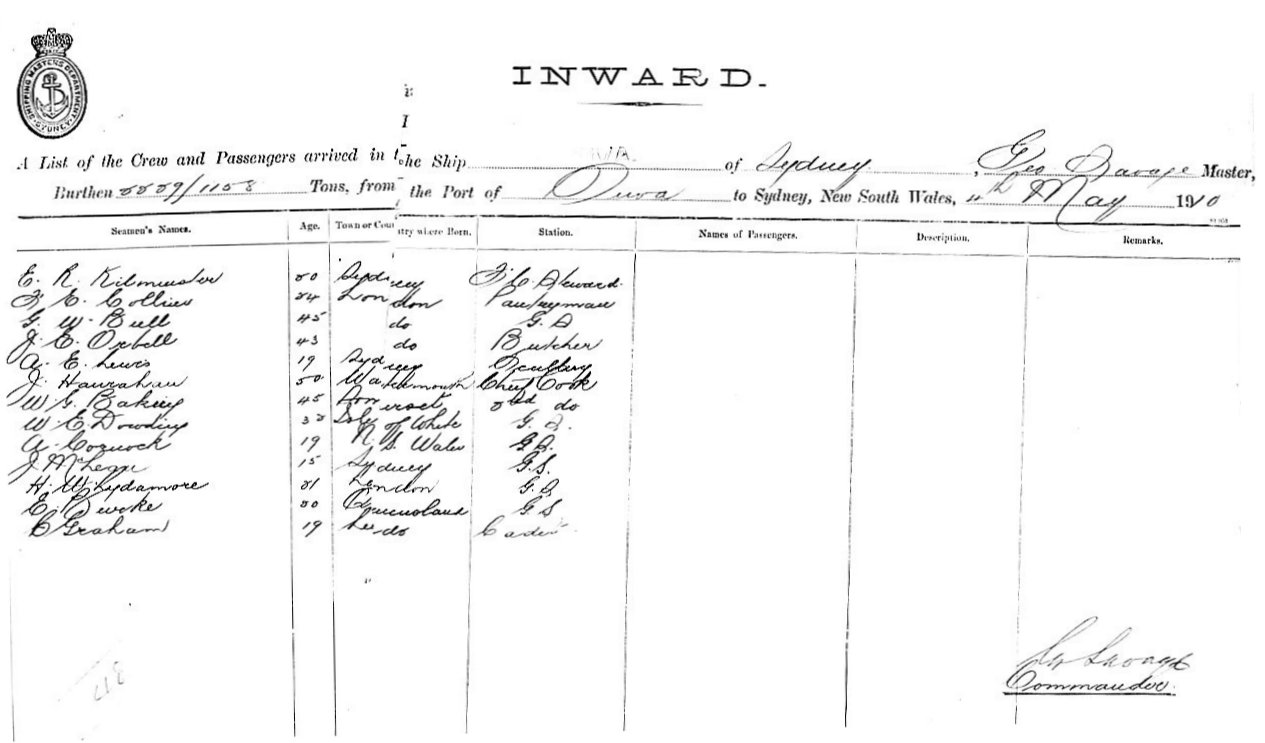 SHIPPING MASTERS DEPARTMENT SYDNEY
INWARD.
A List of the Crew and Passengers arrived in the Ship of Sydney, Geo Savage Master,
Burthen Tons, from the Port of Suva to Sydney, New South Wales, 4th May 1910
Seamen's Names. Age. Town or Country where Born. Station. Names of Passengers. Description. Remarks.
E. R. Kilminster Sydney Steward
F. E. Collins London Pantryman
G. W. Bull 45 do G.S
J. E. Orbell 43 do Butcher
A. E. Lewis 19 Sydney Scullery
J. Hanrahan Chief Cook
W. G. Baking 45 2nd do
W. E. Dowding Isle of White G.S.
A. 19 N. S. Wales G.S.
J. 15 Sydney G.S.
H. W. Lydamore London G.S
E. Burke Queensland G S
C Graham 19 do Cadet
317
Geo Savage
Commander.